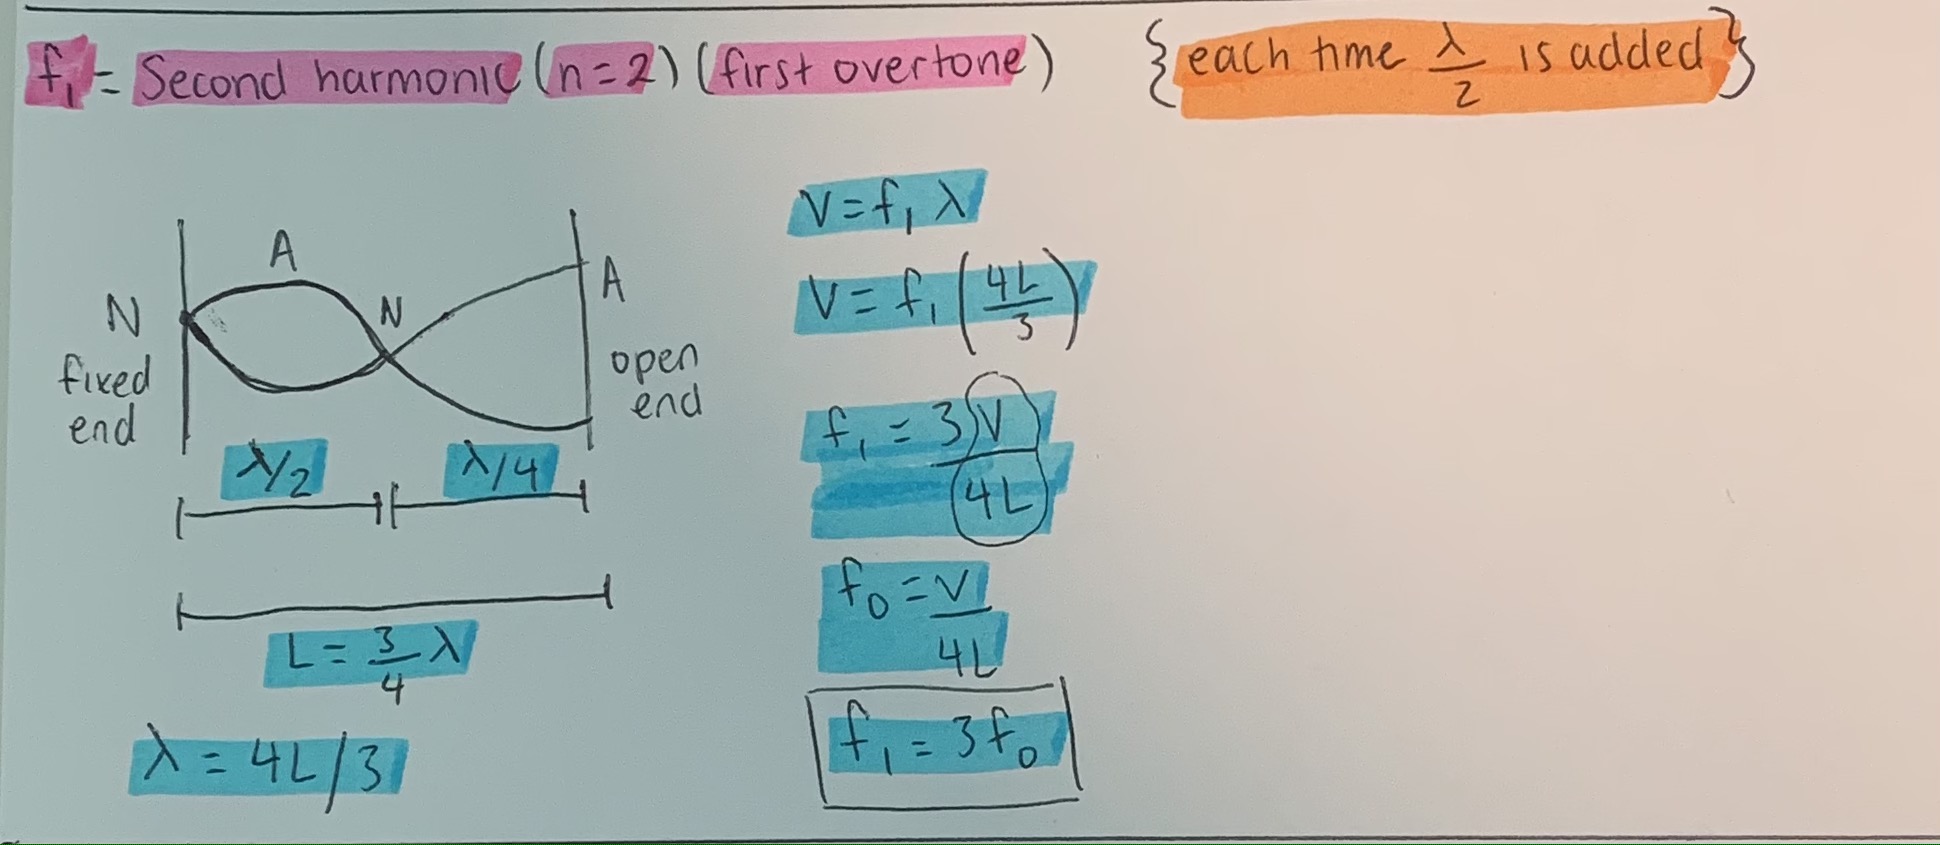 f₁ = Second harmonic (n=2) (first overtone) {each time λ/2 is added}
A
N
N
A
fixed
end
open
end
λ/2
λ/4
L = 3/4 λ
λ = 4L/3
V = f₁ λ
V = f₁ (4L/3)
f₁ = 3V/4L
f₀ = V/4L
f₁ = 3f₀